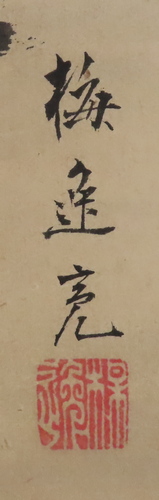 梅逸亮